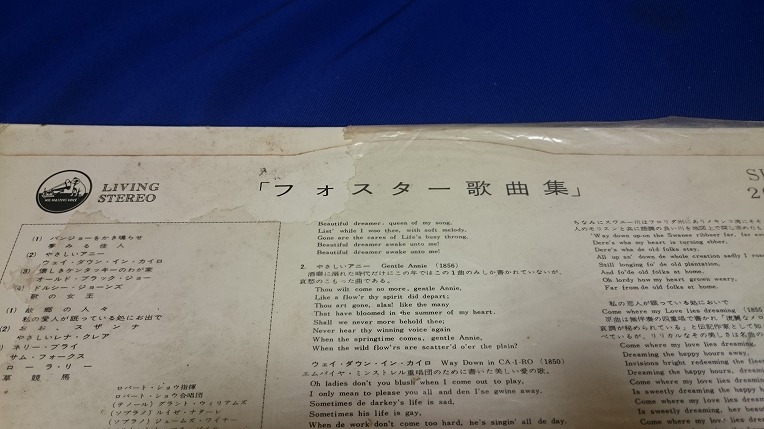 HIS MASTER'S VOICE
LIVING
STEREO
「フォスター歌曲集」
(1) バンジョーをかき鳴らせ
夢みる佳人
(2) やさしいアニー
ウェイ・ダウン・イン・カイロ
(3) 懐しきケンタッキーのわが家
オールド・ブラック・ジョー
(4) ドルシー・ジョーンズ
歌の女王
(1) 故郷の人々
私の愛人が眠っている処にお出で
(2) おお、スザンナ
やさしいレナ・クレア
ネリー・ブライ
サム・フォークス
ローラ・リー
草競馬
ロバート・ショウ指揮
ロバート・ショウ合唱団
(テノール) グラント・ウィリアムズ
(ソプラノ) ルイゼ・ナターレ
(ソプラノ) ジェームズ・ワイナー
Beautiful dreamer, queen of my song,
List' while I woo thee, with soft melody,
Gone are the cares of Life's busy throng,
Beautiful dreamer awake unto me!
Beautiful dreamer awake unto me!
2. やさしいアニー Gentle Annie (1856)
酒癖に溺れた時代だけにこの年ではこの1曲のみしか書かれていないが、
哀愁のこもった曲である。
Thou wilt come no more, gentle Annie,
Like a flow'r thy spirit did depart;
Thou art gone, alas! like the many
That have bloomed in the summer of my heart.
Shall we never more behold thee;
Never hear thy winning voice again
When the springtime comes, gentle Annie,
When the wild flow'rs are scatter'd o'er the plain?
ウェイ・ダウン・イン・カイロ Way Down in CA-I-RO (1850)
エムパイヤ・ミンストレル重唱団のために書いた美しい愛の歌。
Oh ladies don't you blush when I come out to play,
I only mean to please you all and den I'se gwine away.
Sometimes de darkey's life is sad,
Sometimes his life is gay,
When de work don't come too hard, he's singin' all de day.
ちなみにスワニー川はフロリダ州にありメキシコ湾にそそ
'Way down upon the Swanee ribber far, far
Dere's wha my heart is turning ebber,
Dere's wha de old folks stay.
All up an' down de whole creation sadly I roam
Still longing fo' de old plantation,
And fo' de old folks at home.
Oh lordy how my heart grows weary,
Far from de old folks at home.
私の恋人が眠っている処において
Come where my love lies dreaming (1855
Come where my love lies dreaming,
Dreaming the happy hours away,
Invisions bright redeeming the fleet
Dreaming the happy hours, dreaming
Come where my love lies dreaming
Is sweetly dreaming the happy h
Come where my love lies dreaming
Is sweetly dreaming, her beau
Come where my love lies drea